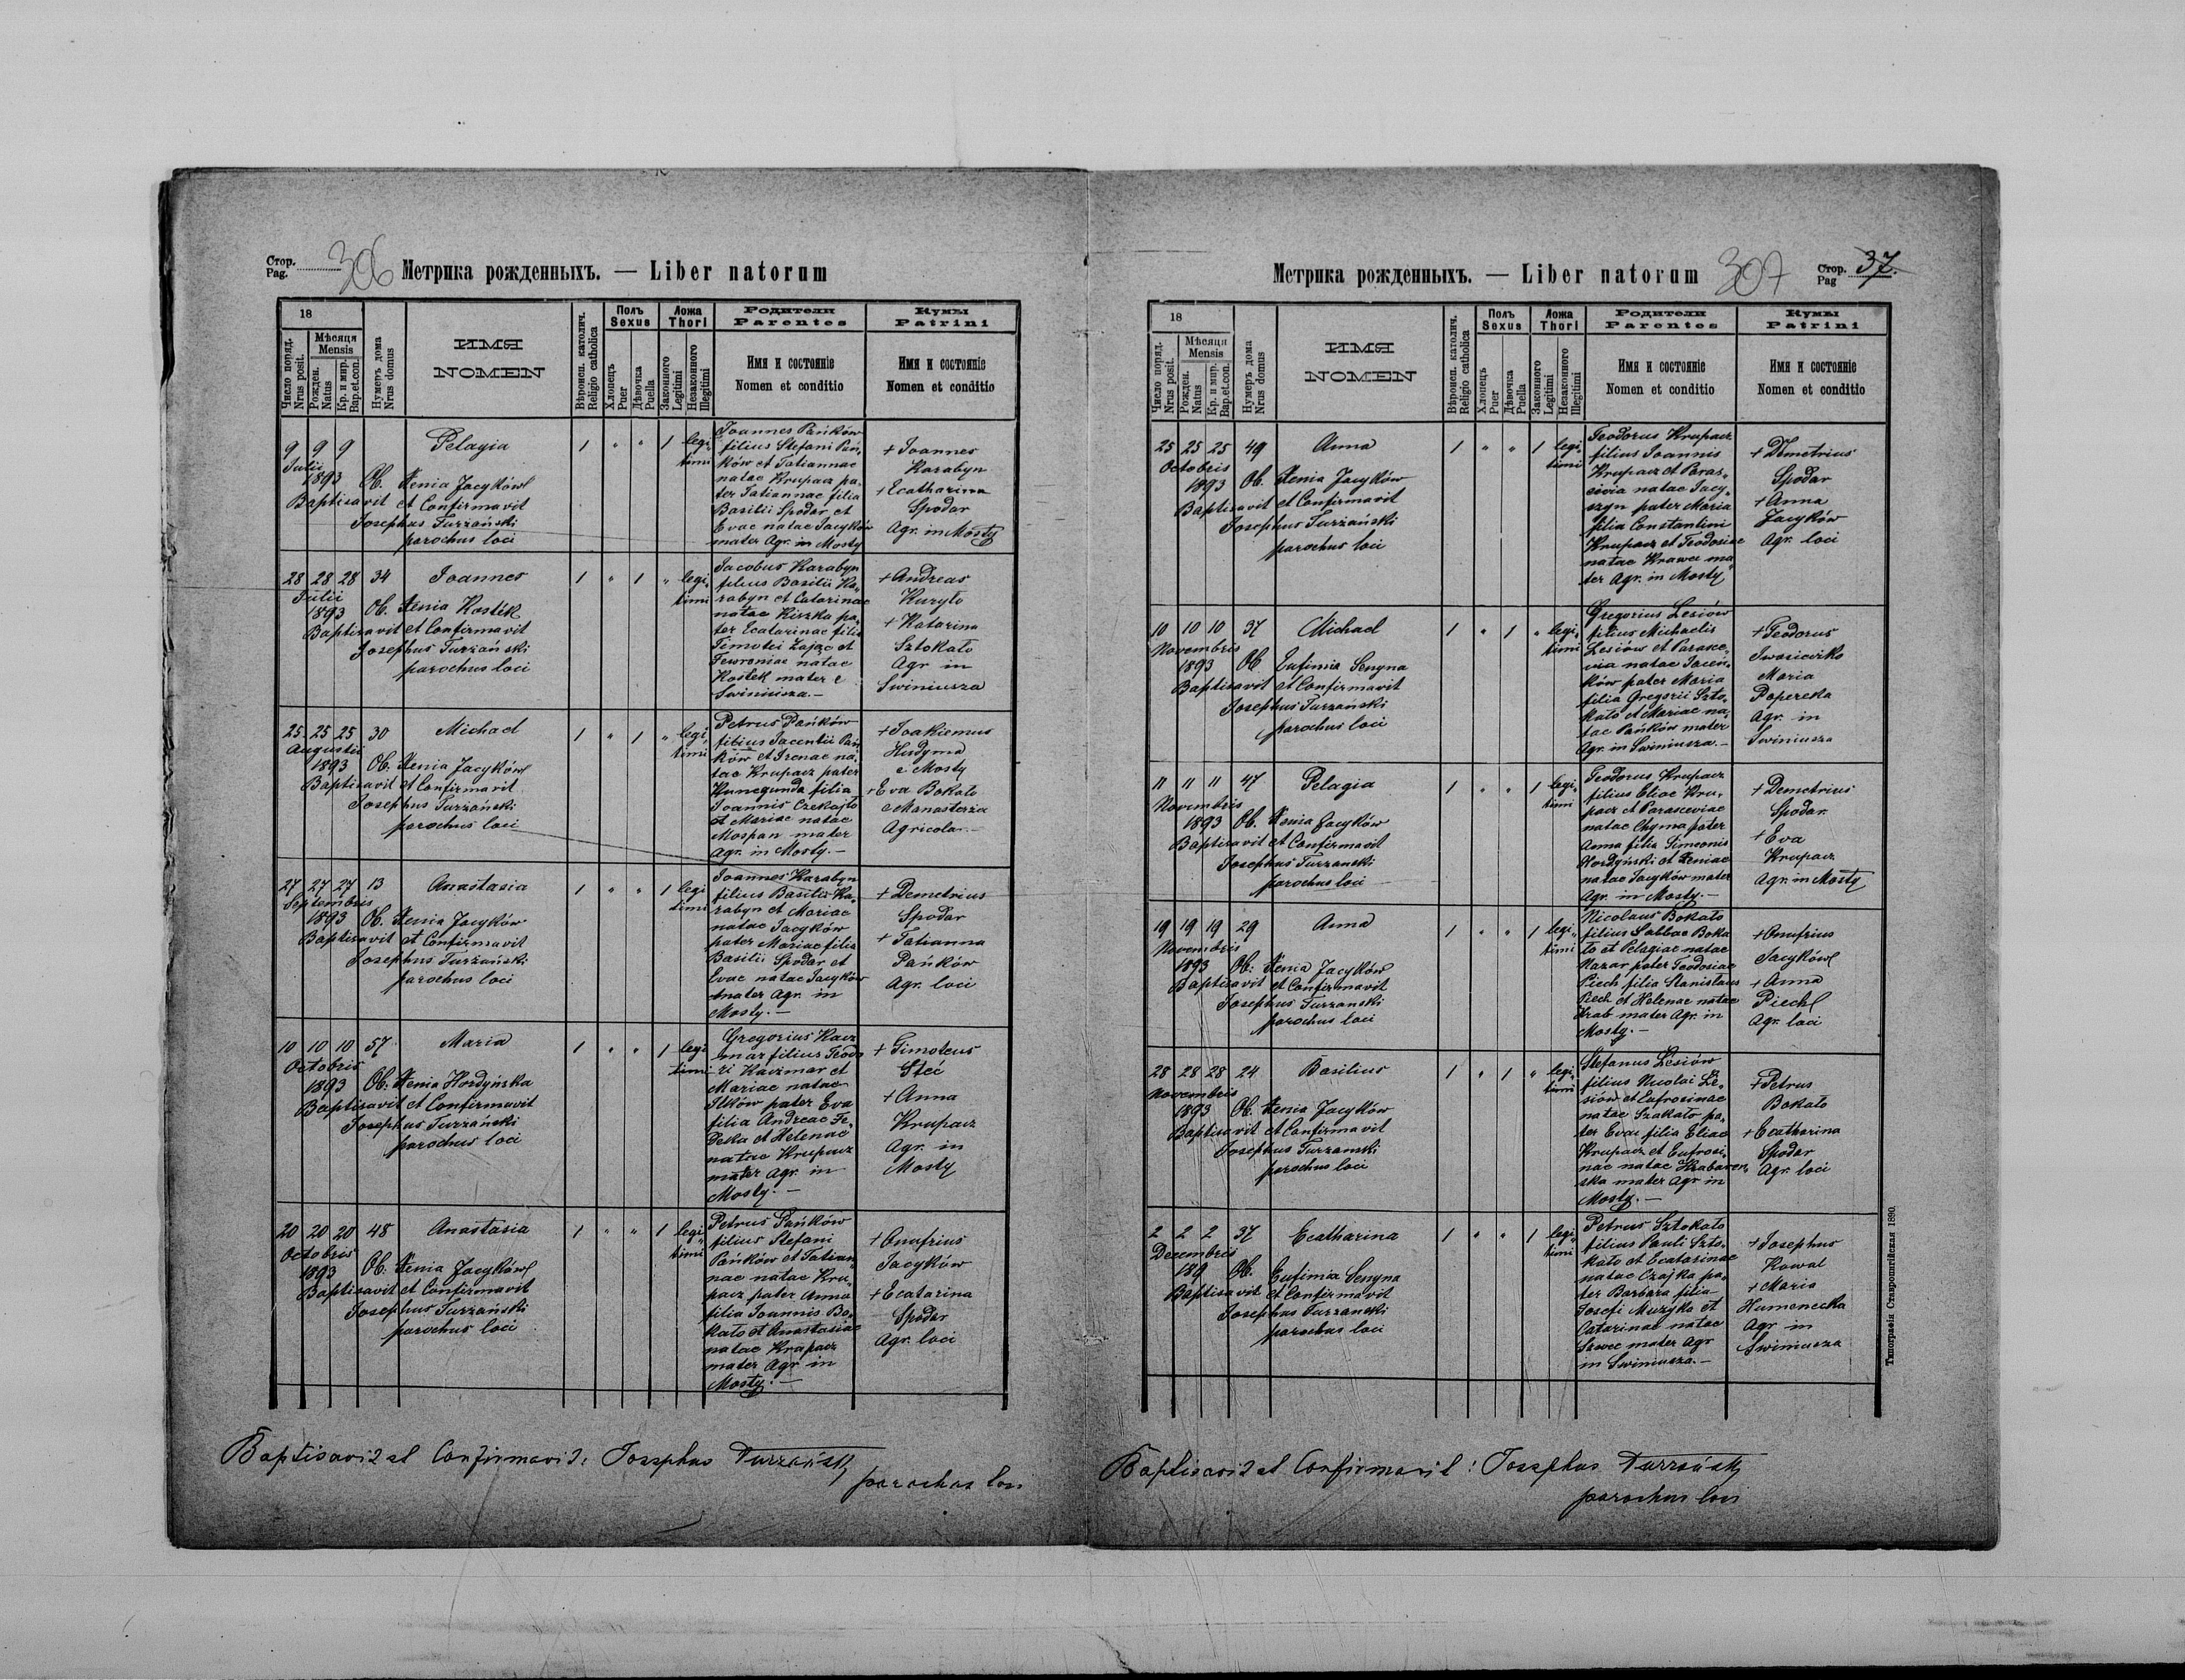 Стор.
Pag. 306
Метрика рожденныхъ. — Liber natorum
18
Число поряд.
Nrus posit.
Мѣсяця
Mensis
Рожден.
Natus
Кр. и мир.
Bap. et. con.
Нумеръ дома
Nrus domus
ИМЯ
NOMEN
Вѣроисп. католич.
Religio catholica
Полъ
Sexus
Хлопецъ
Puer
Дѣвочка
Puella
Ложа
Thori
Законного
Legitimi
Незаконного
Illegitimi
Родители
Parentes
Имя и состоянiе
Nomen et conditio
Кумы
Patrini
Имя и состоянiе
Nomen et conditio
9 9 9
Julii
1893
Pelagia
Ob. Xenia Jacyków
Baptisavit et Confirmavit
Josephus Turzański
parochus loci
1 " " 1 legi-
timi
Joannes Pańków
filius Stefani Pań-
ków et Tatiannae
natae Krupacz pa-
ter Tatiannae filia
Basilii Spodar et
Evae natae Jacyków
mater Agr. in Mosty
+ Joannes
Karabyn
+ Ecatharina
Spodar
Agr. in Mosty
28 28 28 34
Julii
1893
Joannes
Ob. Xenia Kostek
Baptisavit et Confirmavit
Josephus Turzański
parochus loci
1 " 1 " legi-
timi
Jacobus Karabyn
filius Basilii Ka-
rabyn et Catarinae
natae Kiszka pa-
ter Ecatarinae filia
Timotei Zając et
Fewroniae natae
Kostek mater e
Swiniusza. —
+ Andreas
Kuryło
+ Katarina
Sztokało
Agr in
Swiniusza
25 25 25 30
Augustii
1893
Michael
Ob. Xenia Jacyków
Baptisavit et Confirmavit
Josephus Turzański
parochus loci
1 " 1 " legi-
timi
Petrus Pańków
filius Jacentii Pań-
ków et Irenae na-
tae Krupacz pater
Kunegunda filia
Joannis Czekajło
et Mariae natae
Mospan mater
Agr. in Mosty. —
+ Joakiemus
Husdyma
e Mosty
+ Eva Bokało
e Manasteria
Agricolae. —
27 27 27 13
Septembris
1893
Anastasia
Ob. Xenia Jacyków
Baptisavit et Confirmavit
Josephus Turzański
parochus loci
1 " " 1 legi
timi
Joannes Karabyn
filius Basilii Ka-
rabyn et Mariae
natae Jacyków
pater Mariae filia
Basilii Spodar et
Evae natae Jacyków
mater Agr. in
Mosty. —
+ Demetrius
Spodar
+ Tatianna
Pańków
Agr. loci
10 10 10 57
Octobris
1893
Maria
Ob. Xenia Hordyńska
Baptisavit et Confirmavit
Josephus Turzański
parochus loci
1 " " 1 legi
timi
Gregorius Kacz
mar filius Teodo
ri Kaczmar et
Mariae natae
Ilków pater Eva
filia Andreae Fe-
deka et Helenae
natae Krupacz
mater Agr. in
Mosty. —
+ Timoteus
Steć
+ Anna
Krupacz
Agr. in
Mosty
20 20 20 48
Octobris
1893
Anastasia
Ob. Xenia Jacyków
Baptisavit et Confirmavit
Josephus Turzański
parochus loci
1 " " 1 legi-
timi
Petrus Pańków
filius Stefani
Pańków et Tatian-
nae natae Kru-
pacz pater Anna
filia Joannis Bo-
kało et Anastasiae
natae Krupacz
mater Agr in
Mosty. —
+ Onufrius
Jacyków
+ Ecatarina
Spodar
Agr. loci
Baptisavit et Confirmavit: Josephus Turzański
parochus loci
Метрика рожденныхъ. — Liber natorum 307
Стор.
Pag 37.
18
Число поряд.
Nrus posit.
Мѣсяця
Mensis
Рожден.
Natus
Кр. и мир.
Bap. et. con.
Нумеръ дома
Nrus domus
ИМЯ
NOMEN
Вѣроисп. католич.
Religio catholica
Полъ
Sexus
Хлопецъ
Puer
Дѣвочка
Puella
Ложа
Thori
Законного
Legitimi
Незаконного
Illegitimi
Родители
Parentes
Имя и состоянiе
Nomen et conditio
Кумы
Patrini
Имя и состоянiе
Nomen et conditio
25 25 25 49
Octobris
1893
Anna
Ob. Xenia Jacyków
Baptisavit et Confirmavit
Josephus Turzański
parochus loci
1 " " 1 legi-
timi
Teodorus Krupacz
filius Joannis
Krupacz et Paras-
cevia natae Jacy-
szyn pater Maria
filia Constantini
Krupacz et Teodosiae
natae Krawec ma
ter Agr. in Mosty
+ Demetrius
Spodar
+ Anna
Jacyków
Agr. loci
10 10 10 37
Novembris
1893
Michael
Ob Eufimia Senyna
Baptisavit et Confirmavit
Josephus Turzański
parochus loci
1 " 1 " legi-
timi
Gregorius Lesiów
filius Michaelis
Lesiów et Parasce-
via natae Jacen-
ków pater Maria
filia Gregorii Szto-
kało et Mariae na-
tae Pańków mater
Agr. in Swiniusza. —
+ Teodorus
Iwasieczko
Maria
Papereka
Agr. in
Swiniusza
11 11 11 47
Novembris
1893
Pelagia
Ob. Xenia Jacyków
Baptisavit et Confirmavit
Josephus Turzanski
parochus loci
1 " " 1 legi-
timi
Teodorus Krupacz
filius Eliae Kru-
pacz et Parasceviae
natae Chyma pater
Anna filia Simeonis
Hordyński et Xeniae
natae Jacyków mater
Agr. in Mosty. —
+ Demetrius
Spodar
+ Eva
Krupacz
Agr. in Mosty
19 19 19 29
Novembris
1893
Anna
Ob: Xenia Jacyków
Baptisavit et Confirmavit
Josephus Turzanski
parochus loci
1 " " 1 legi-
timi
Nicolaus Bokało
filius Sabbae Boka
ło et Pelagiae natae
Nazar pater Teodosiae
Piech filia Stanislaus
Piech et Helenae natae
Krab mater Agr. in
Mosty. —
+ Onufrius
Jacyków
+ Anna
Piech
Agr. loci
28 28 28 24
Novembris
1893
Basilius
Ob. Xenia Jacyków
Baptisavit et Confirmavit
Josephus Turzanski
parochus loci
1 " 1 " legi-
timi
Stefanus Lesiów
filius Nicolai Le-
siów et Eufrosinae
natae Szakało pa-
ter Evae filia Eliae
Krupacz et Eufrosi-
nae natae
ska mater Agr in
Mosty. —
+ Petrus
Bokało
+ Ecatharina
Spodar
Agr. loci
2 2 2 37
Decembris
189
Ecatharina
Ob. Eufimia Senyna
Baptisavit et Confirmavit
Josephus Turzanski
parochus loci
1 " " 1 legi-
timi
Petrus Sztokało
filius Pauli Szto-
kało et Ecatarinae
natae Czajka pa-
ter Barbara filia
Josefi Muzyka et
Catarinae natae
Szwec mater Agr
in Swiniusza. —
+ Josephus
Kowal
+ Maria
Humenecka
Agr in
Swiniusza
Типографія Ставропигійская 1890.
Baptisavit et Confirmavit: Josephus Turzański
parochus loci